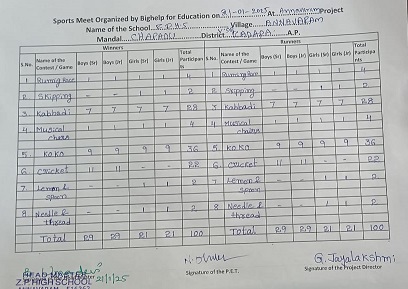 Sports Meet Organized by Bighelp for Education on 21-01-2025 At Annavaram Project
Name of the School Z.P.H.S Village ANNAVARAM
Mandal CHAPADU District KADAPA A.P.
Winners Runners
S.No. Name of the Contest / Game Boys (Sr) Boys (Jr) Girls (Sr) Girls (Jr) Total Participants S.No. Name of the Contest / Game Boys (Sr) Boys (Jr) Girls (Sr) Girls (Jr) Total Participants
1 Running Race 1 1 1 1 4 Running Race 1 1 1 1 4
2 Skipping - - 1 1 2 2 Skipping - - 1 1 2
3 Kabbadi 7 7 7 7 28 3 Kabbadi 7 7 7 7 28
4 Musical chairs 1 1 1 1 4 4 Musical chairs 1 1 1 1 4
5. KOKO 9 9 9 9 36 5. KOKO 9 9 9 9 36
6 Cricket 11 11 - - 22 6 Cricket 11 11 - - 22
7. Lemon & spoon - - 1 1 2 7 Lemon & spoon - - 1 1 2
8 Needle & thread - - 1 1 2 8 Needle & thread - - 1 1 2
Total 29 29 21 21 100 Total 29 29 21 21 100
G. Jayalakshmi
Signature of the P.E.T. Signature of the Project Director
HEAD MASTER 21/1/25
Z.P.HIGH SCHOOL